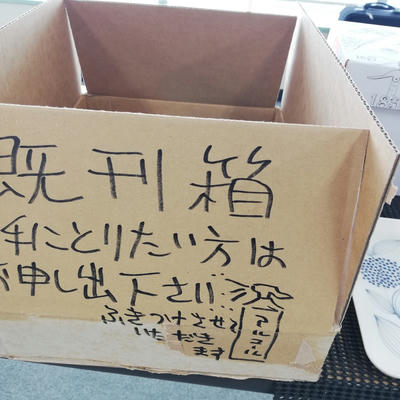 既刊箱
手にとりたい方は
お申し出下さい
アルコール
ふきつけさせて
いただき
ます